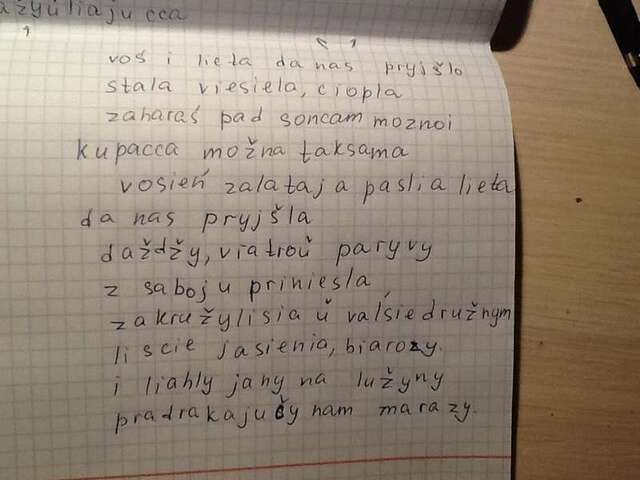 ažyŭliajucca
voś i lieta da nas pryjšlo
stala viesiela, ciopla
zaharaś pad soncam moznoi
kupacca možna taksama
vosień zalataja paslia lieta
da nas pryjšla
daždžy, viatroŭ paryvy
z saboju priniesla
zakružylisia ŭ valśie družnym
liscie jasienia, biarozy.
i liahly jany na lužyny
pradrakajučy nam marazy.